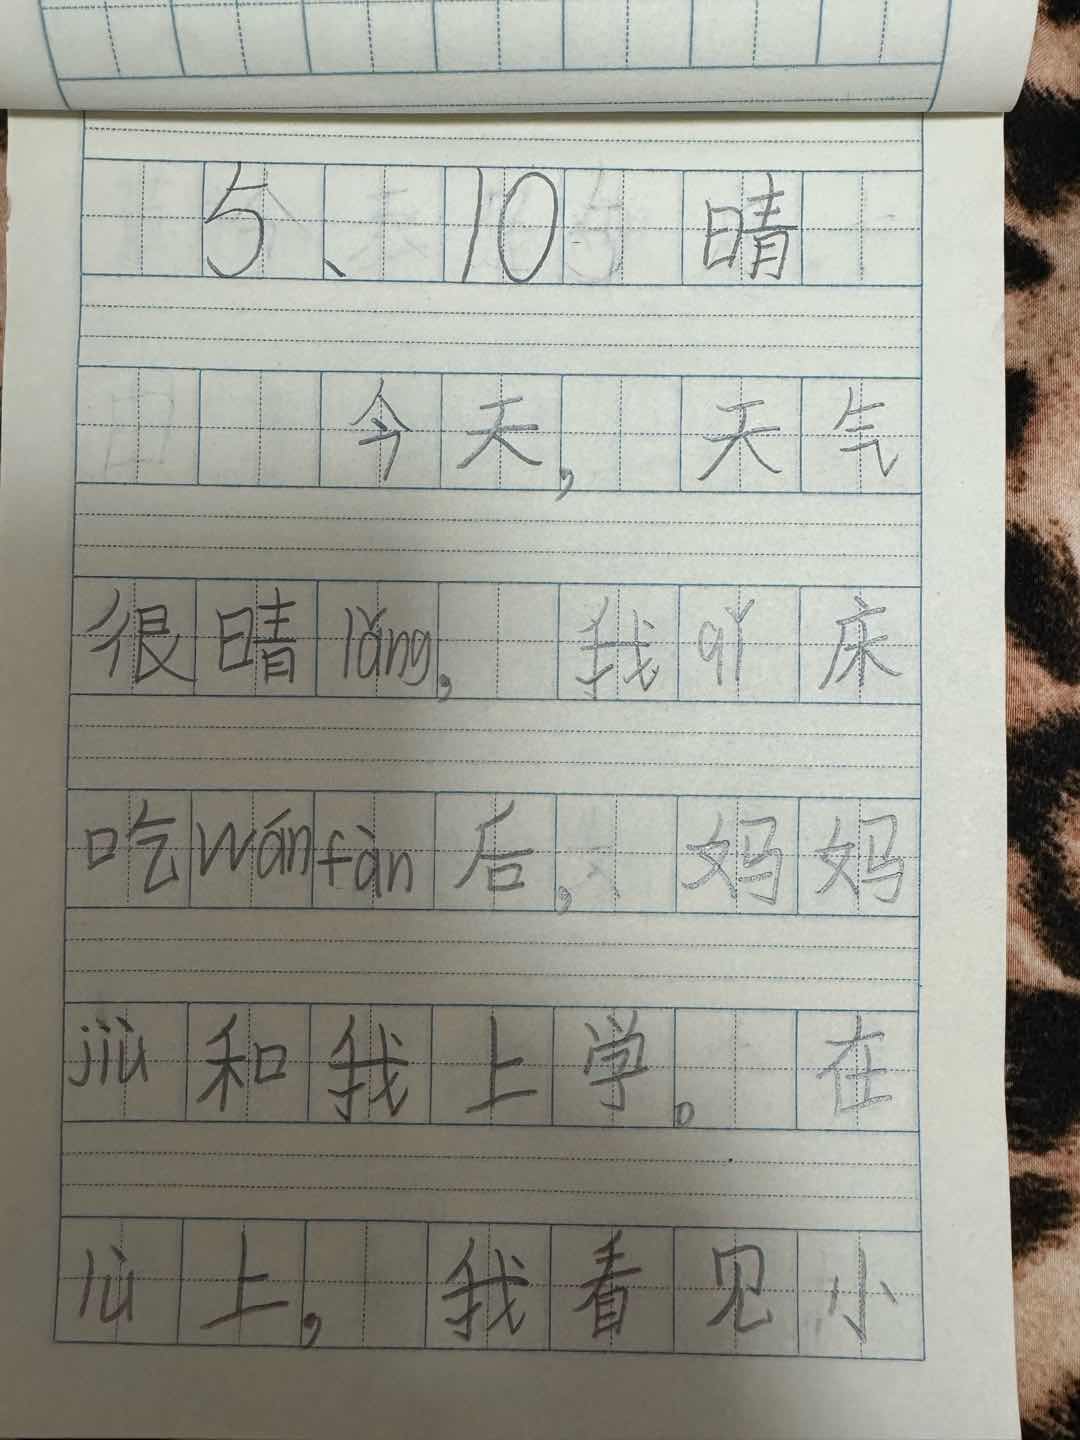 5、10 晴
今天,天气
很晴lǎng,我qǐ床
吃wánfàn后,妈妈
jiù和我上学。在
lù上,我看见小